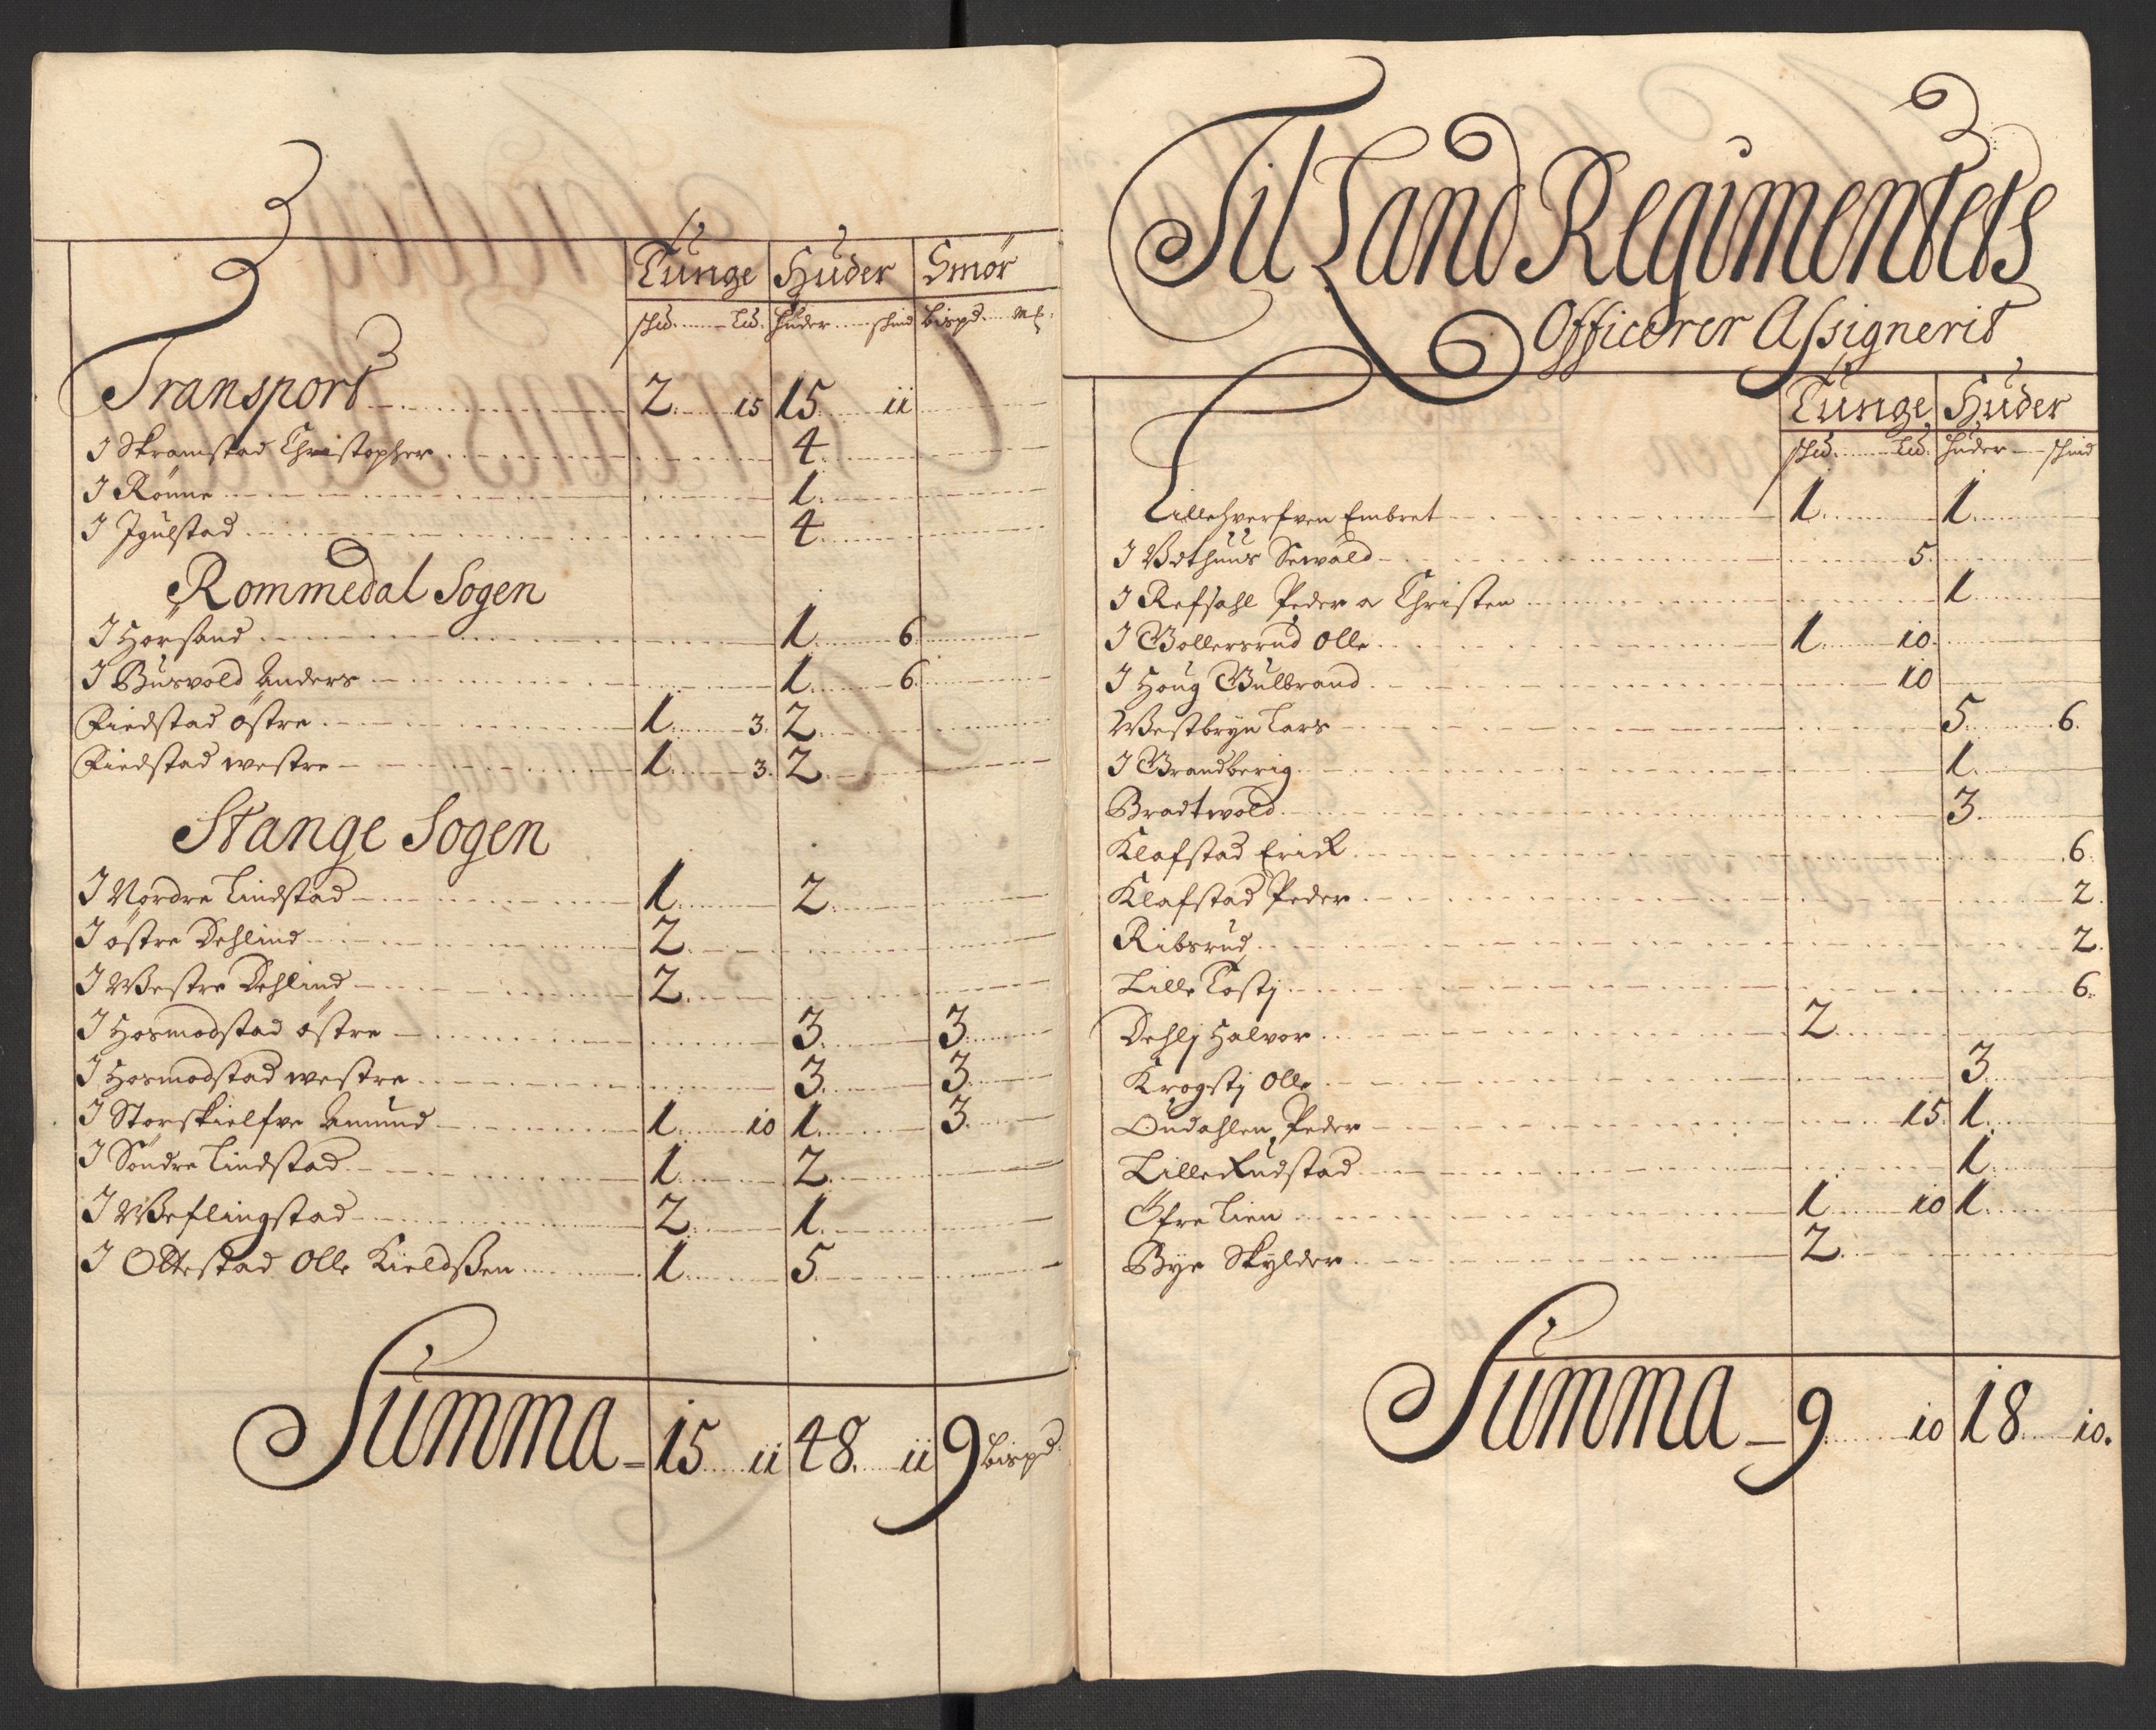 Tunge Huder Smør
skd. Ld. huder skind bispd. mk:
Transport 2. 15 15. ii
I Skramstad Christopher 4.
I Rönne 1.
I Igulstad 4.
Rommedal Sogen
I Horsand 1. 6.
I Busvold Anders 1. 6.
Fiedstad östre 1. 3. 2.
Fiedstad westre 1. 3. 2.
Stange Sogen
I Nordre Lindstad 1. 2.
I östre Dehlind 2.
I Westre Dehlind 2.
I Hosmodstad östre 3. 3.
I Hosmodstad westre 3. 3.
I Storskielfve Amund 1. 10 1. 3.
I Söndre Lindstad 1. 2.
I Weflingstad 2. 1.
I Ottestad Olle Kieldßen 1. 5.
Summa 15. ii 48. ii 9 bispd.
Til Land Regimentets
Officerer Assignerit
Tunge Huder
skd. Ld. huder skind
Lillehverfven Embret 1. 1.
I Vdthuus Sewald 5.
I Refsahl Peder a Christen 1.
I Gollersrud Olle 1. 10.
I Houg Gulbrand 10
Westbryn Lars 5. 6.
I Grandberig 1.
Bradtwold 3.
Klafstad Erick 6.
Klafstad Peder 2.
Ribsrud 2.
Lille Tostj 6.
Dehlj Halvor 2.
Krogstj Olle 3.
Oudahlen Peder 15. 1.
Lille Rudstad 1.
Öfre Lien 1. 10 1.
Bye Skylder 2.
Summa 9. 10 18. 10.